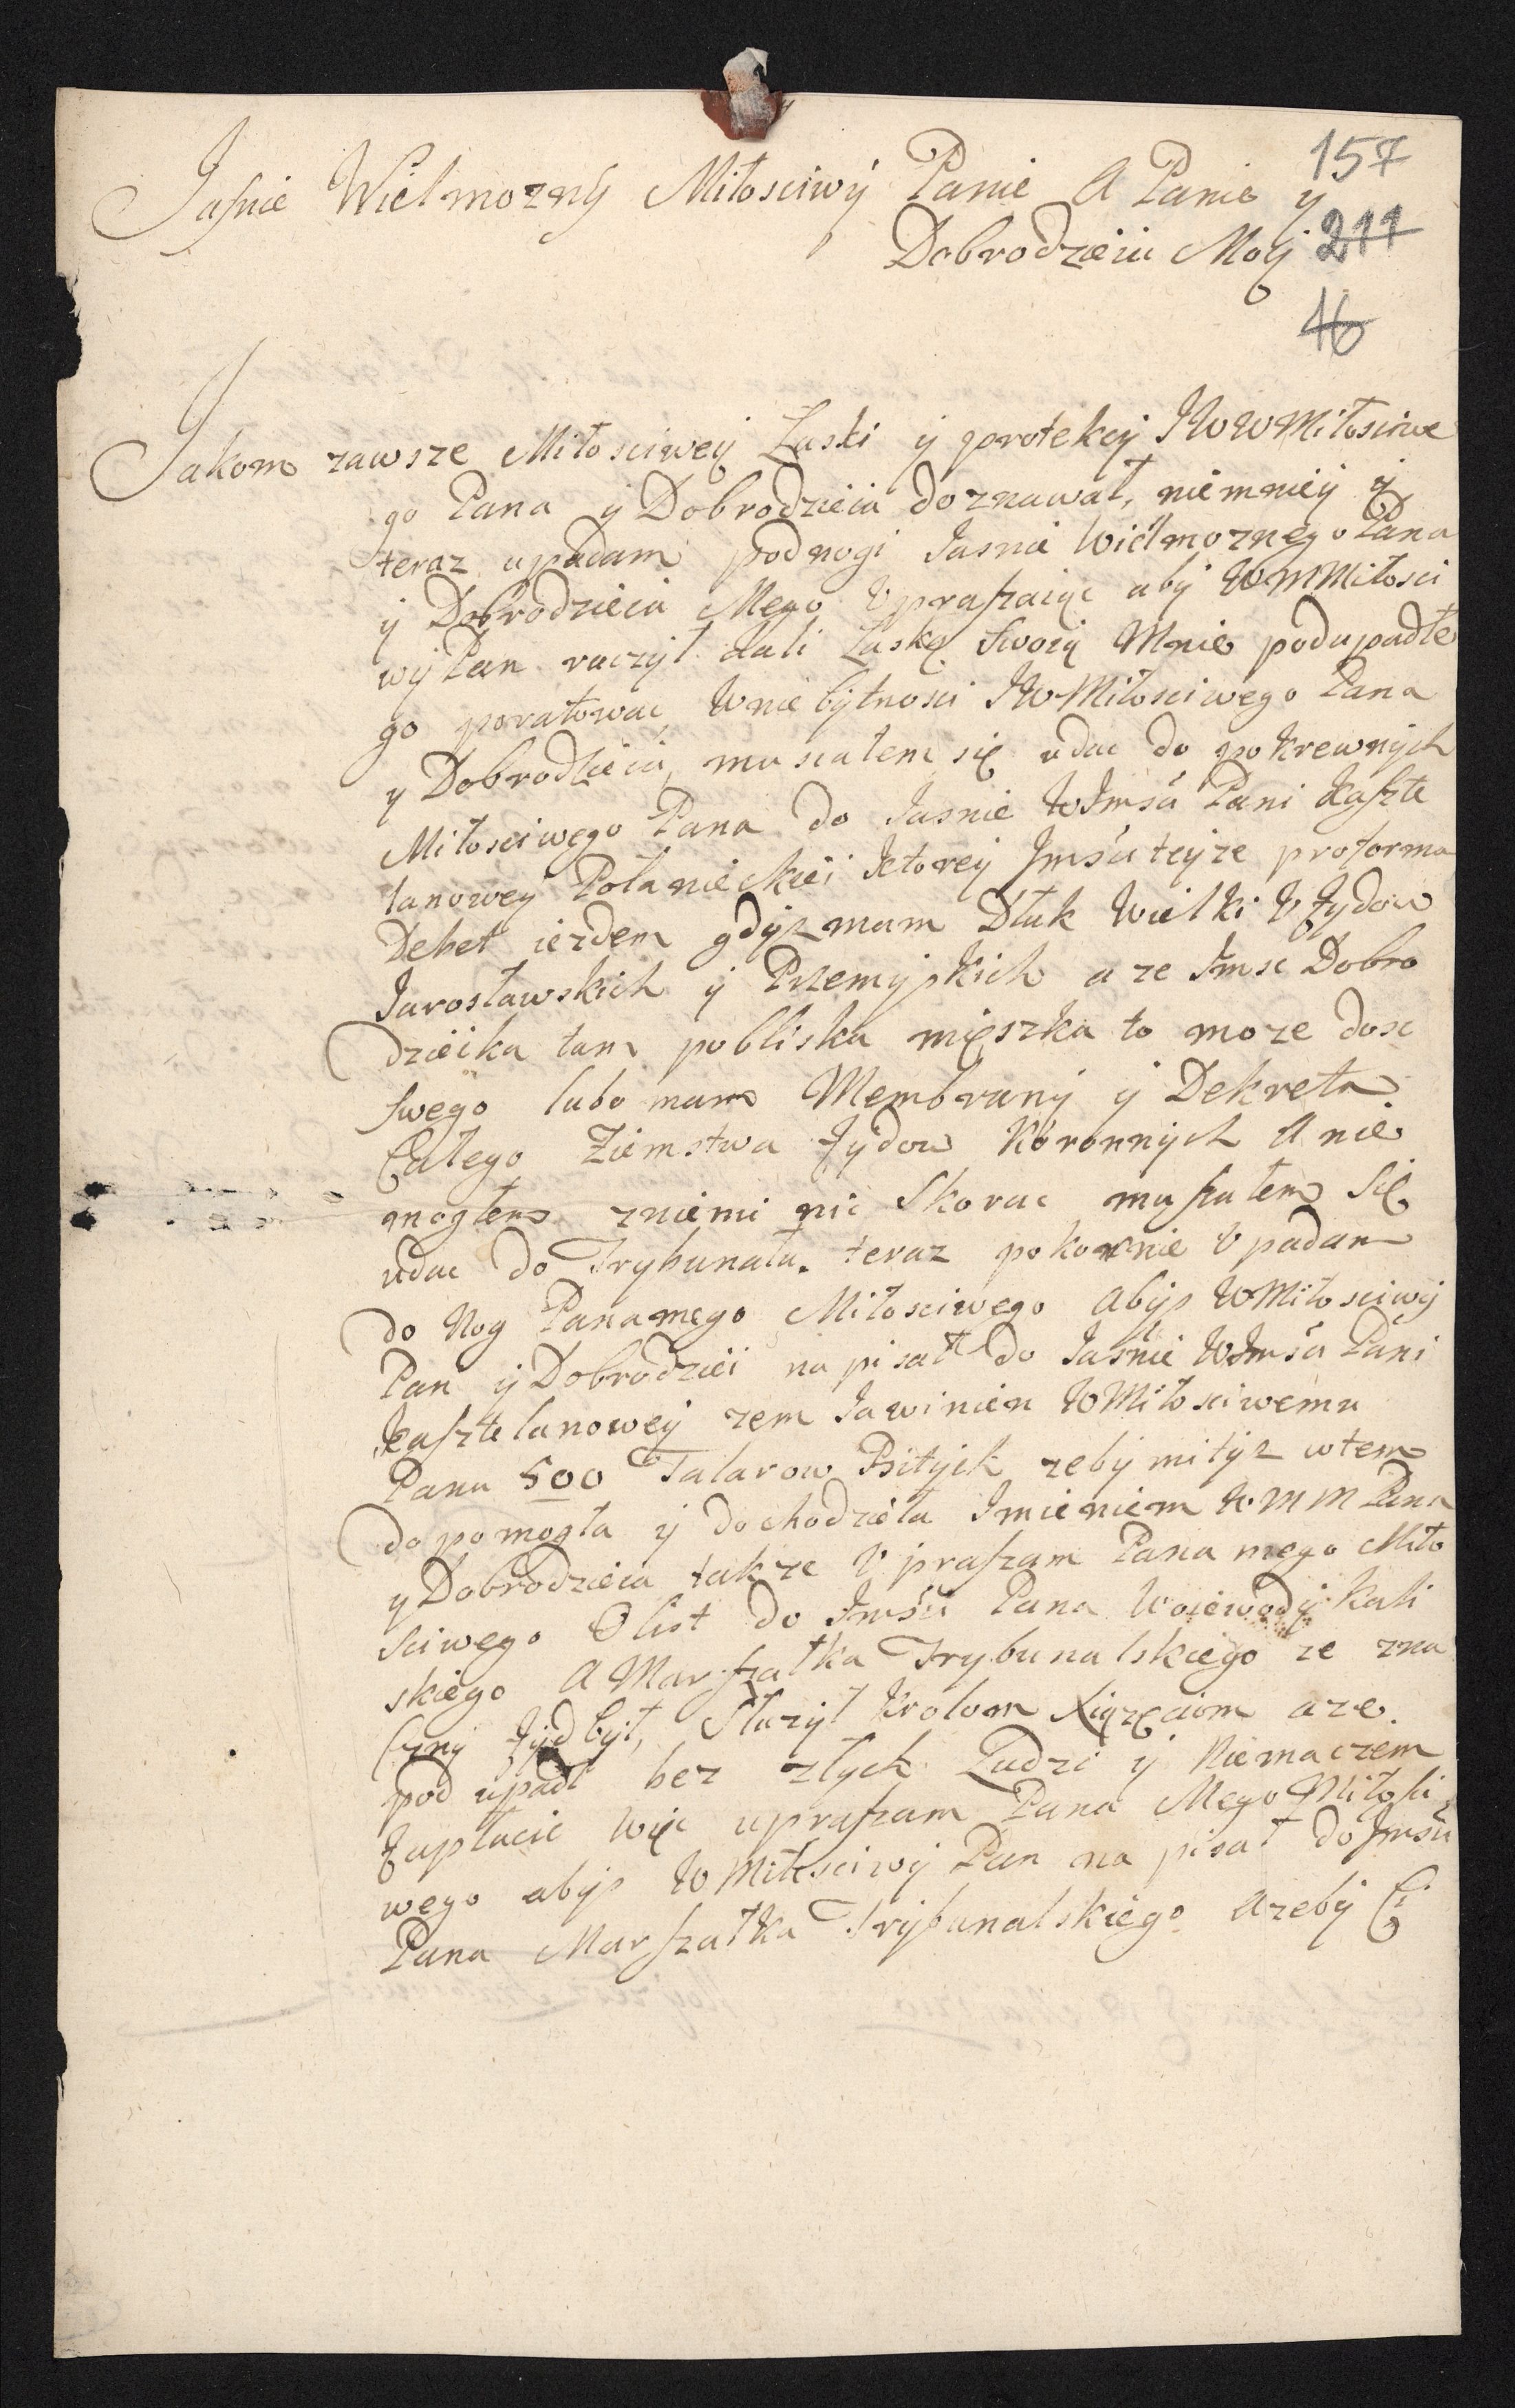 157
Jaśnie Wielmozny Miłosciwy Panie A Panie y
Dobrodzieiu Moy
211
46
Jakom zawsze Miłosciwey Łaski y protekcy JWWMiłosciwe
go Pana y Dobrodzieia doznawał, niemniey y
teraz upadam podnogi Jasnie Wielmoznego Pana
y Dobrodzieia Mego Upraszaiąc aby WMMiłosci
wy Pan raczył dali Łaskę Swoię Mnie podupadłe
go poratowac Wniebytnosci JWMiłosciwego Pana
y Dobrodzieia, musiałem się udac do pokrewnych
Miłosciwego Pana do Jasnie WJmsci Pani Kaszte
lanowey Połanieckiei Ktorey Jmsci teyze proforma
Debet iezdem gdyz mam Dłuk Wielki U Żydow
Jarosławskich y Przemyskich a ze Jmsc Dobro
dzieika tam pobliska mięszka to moze dosc
swego lubo mam Membrany y Dekreta
Całego Ziemstwa Żydow Koronnych A nie
mogłem zniemi nic Skorac muszałem Się
udac do Trybunału. teraz pokornie Upadam
do Nog Panamego Miłosciwego Abys WMiłosciwy
Pan y Dobrodziei napisał do Jaśnie WJmsci Pani
Kasztelanowey zem Jawinien WMiłosciwemu
Panu 500 Talarow Bitych zeby mityz wtem
dopomogła y dochodzieła Jmieniem WMM Pana
y Dobrodzieia takze Upraszam Pana mego Miło
sciwego O list do Jmsci Pana Woiewody Kali
skiego A Marszałka Trybunalskiego ze zna
czny Żyd był, Słuzył Krolom Xiązęciom a ze
pod upadł bez złych Ludzi y Niemaczem
Zapłacic Więc upraszam Pana Mego Miłosci
wego abys WMiłosciwy Pan na pisał do Jmsci
Pana Marszałka Trybunalskiego Azeby Ci